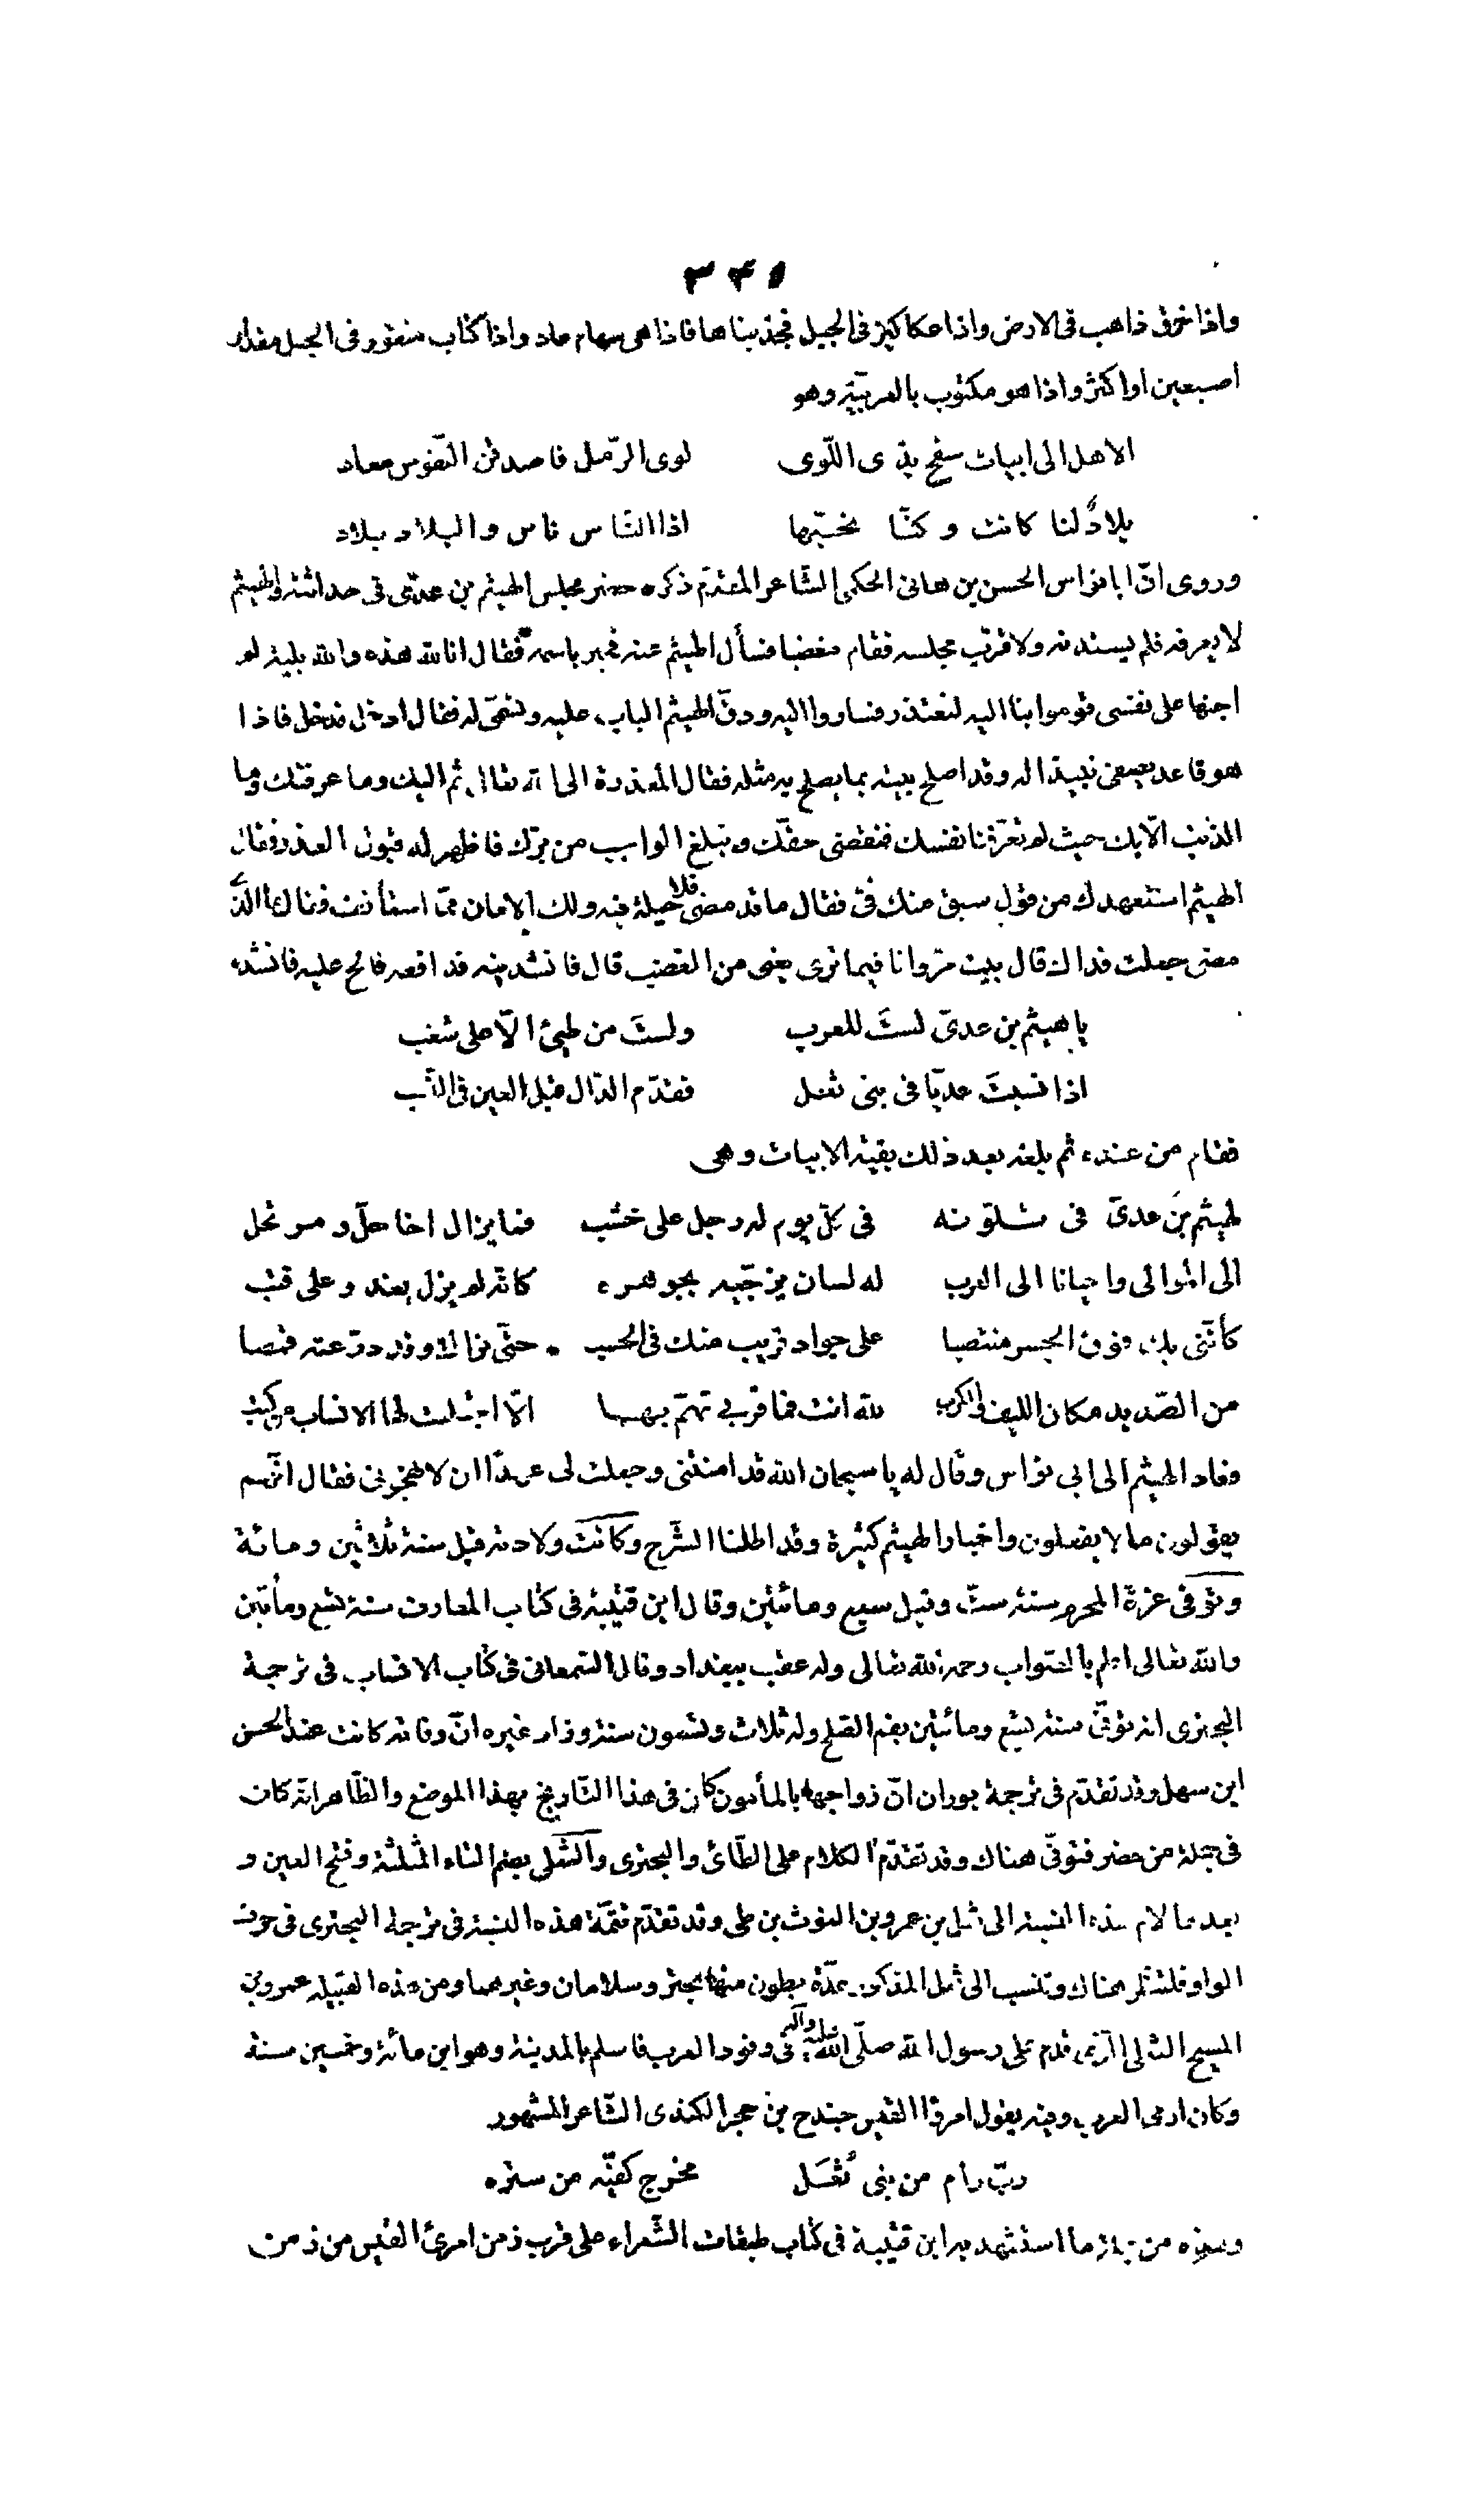 ٣٤١
واذا خرق ذاهب فى الارض واذا عكاكيز فى الجبل فجذبناها فاذا هى سهام عاد واذا كتاب منقور فى الجبل مقدار
اصبعين او اكثر واذا هو مكتوب بالعربيّة وهو
الا هل الى ابيات سفح بذى اللّوى لوى الرّمل فاصدقن النّفوس معاد
بلادٌ لنا كانت و كنّا نحبّها اذا النّاس ناس والبلاد بلاد
وروى انّ ابا نواس الحسن بن هانئ الحكمى الشّاعر المقدّم ذكره حضر مجلس الهيثم بن عدىّ فى حداثته والهيثم
لا يعرفه فلم يستدنه ولا قرّب مجلسه فقام مغضبا فسأل الهيثم عنه فخبر باسمه فقال انا لله هذه والله بلية لم
اجنها على نفسى قوموا بنا اليه لنعتذر فساروا اليه ودقّ الهيثم الباب عليه وتسمّى له فقال ادخل فدخل فاذا
هو قاعد يصفى نبيذا له وقد اصلح بيته بما يصلح به مثله فقال المعذرة الى الله تعالى ثم اليك وما عرفتك وما
الذنب الّا لك حيث لم تعرّفنا نفسك فنقضى حقّك ونبلغ الواجب من برّك فاظهر له قبول العذر فقال
الهيثم استعهدك من قول سبق منك فىّ فقال ما قد مضى فلا حيلة فيه ولك الامان ممّا استأنف فقال ما الّذى
مضى جعلت فداك قال بيت مرّ وانا فيما ترى يعنى من الغضب قال فانشدنيه فدافعه فالح عليه فانشده
يا هيثم بن عدىّ لستَ للعرب ولستَ من طيئ الّا على شغب
اذا نسبتَ عديّا فى بنى ثعل فقدّم الدّال قبل العين فى النّسب
فقام من عنده ثم بلغه بعد ذلك بقيّة الابيات وهى
لهيثم بن عدىّ فى تلوّنه فى كلّ يوم له رجل على خشب فما يزال اخا حلّ ومرتحل
الى الموالى واحيانا الى العرب له لسان يزجّيه بجوهره كانّه لم يزل يغدو على قتب
كأنّنى بك فوق الجسر منتصبا على جواد قريب منك فى الحسب حتّى نراك وقد درّعته قمصا
من الصّديد مكان الليف والكرب لله انت فما قربى تهمّ بها الّا اجتلبت لها الانساب من كثب
فعاد الهيثم الى ابى نواس وقال له يا سبحان الله قد امنتنى وجعلت لى عهدًا ان لا تهجونى فقال انّهم
يقولون ما لا يفعلون واخبار الهيثم كثيرة وقد اطلنا الشّرح وكانت ولادته قبل سنة ثلاثين ومائة
وتوفى غرّة المحرم سنة ستّ وقيل سبع ومائتين وقال ابن قتيبة فى كتاب المعارف سنة تسع ومأتين
والله تعالى اعلم بالصّواب رحمه الله تعالى وله عقب ببغداد وقال السّمعانى فى كتاب الانساب فى ترجمة
البحترى انه توفّى سنة تسع ومائتين بفم الصّلح وله ثلاث وتسعون سنة وزاد غيره انّ وفاته كانت عند الحسن
ابن سهل وقد تقدّم فى ترجمة بوران انّ زواجها بالمأمون كان فى هذا التّاريخ بهذا الموضع والظّاهر انّه كان
فى جملة من حضر فتوفّى هناك وقد تقدّم الكلام على الطّائى والبحترى والثّعلى بضم الثاء المثلثة وفتح العين و
بعدها لام هذه النسبة الى ثعل بن عمرو بن الغوث بن طى وقد تقدّم تتمّة هذه النسبة فى ترجمة البحترى فى حرف
الواو فلتنظر هناك وتنسب الى ثعل المذكور عدّة بطون منها بحتر وسلامان وغيرهما ومن هذه القبيلة عمرو بن
المسبح الثعلى الّذى قدم على رسول الله صلّى الله عليه وآله فى وفود العرب فاسلم بالمدينة وهو ابن مائة وخمسين سنة
وكان ارمى العرب وفيه يقول امرؤ القيس حندج بن حجر الكندى الشّاعر المشهور
ربّ رام من بنى ثُعَل مخرج كفّيه من ستره
وستره من ما استشهد به ابن قتيبة فى كتاب طبقات الشّعراء على قرب زمن امرئ القيس من زمن